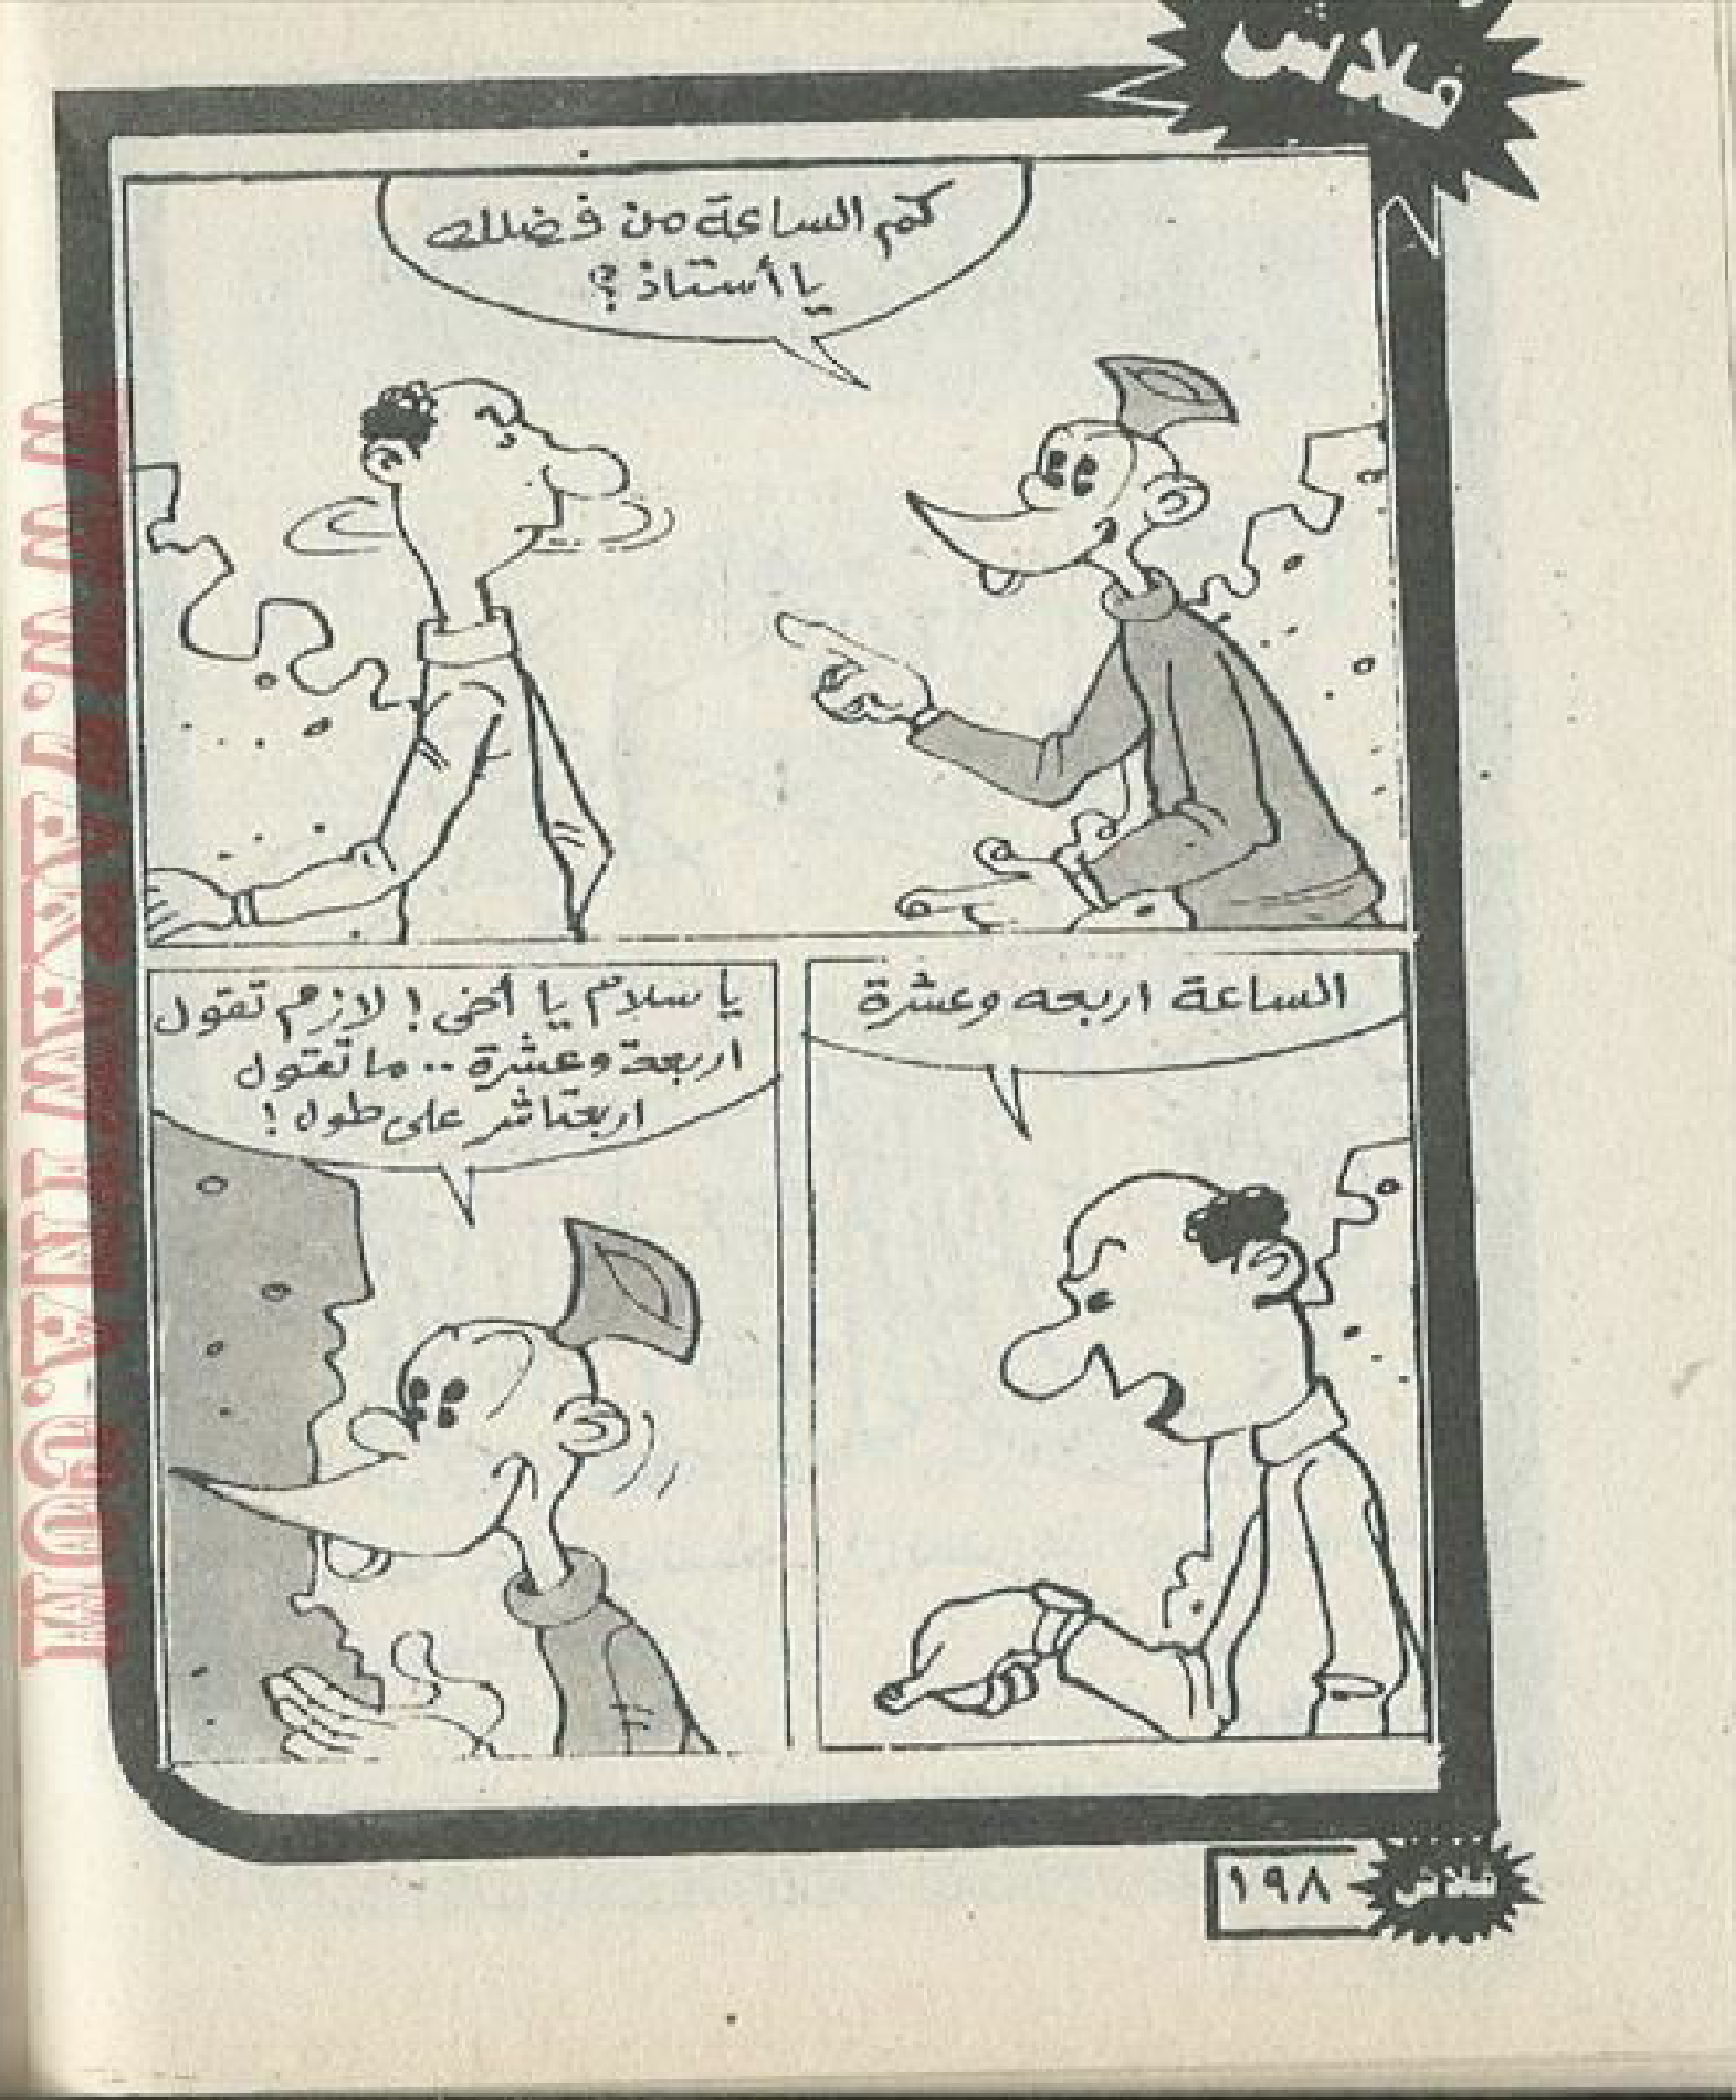 فلاش
كم الساعة من فضلك
يا أستاذ؟
الساعة اربعه وعشرة
يا سلام يا أخي! لازم تقول
اربعة وعشرة .. ما تقول
اربعتاشر على طول!
فلاش
١٩٨